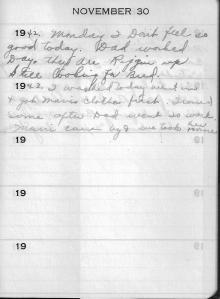 NOVEMBER 30
1942. Monday I Dont feel so
good today. Dad worked
Days. they are Riggin up
Still Looking for Bud.
1943. I washed today went out
+ got Mavis clothes fresh. Ironed
some after Dad went to work.
Mavis came by & she took her
home
19
19
19